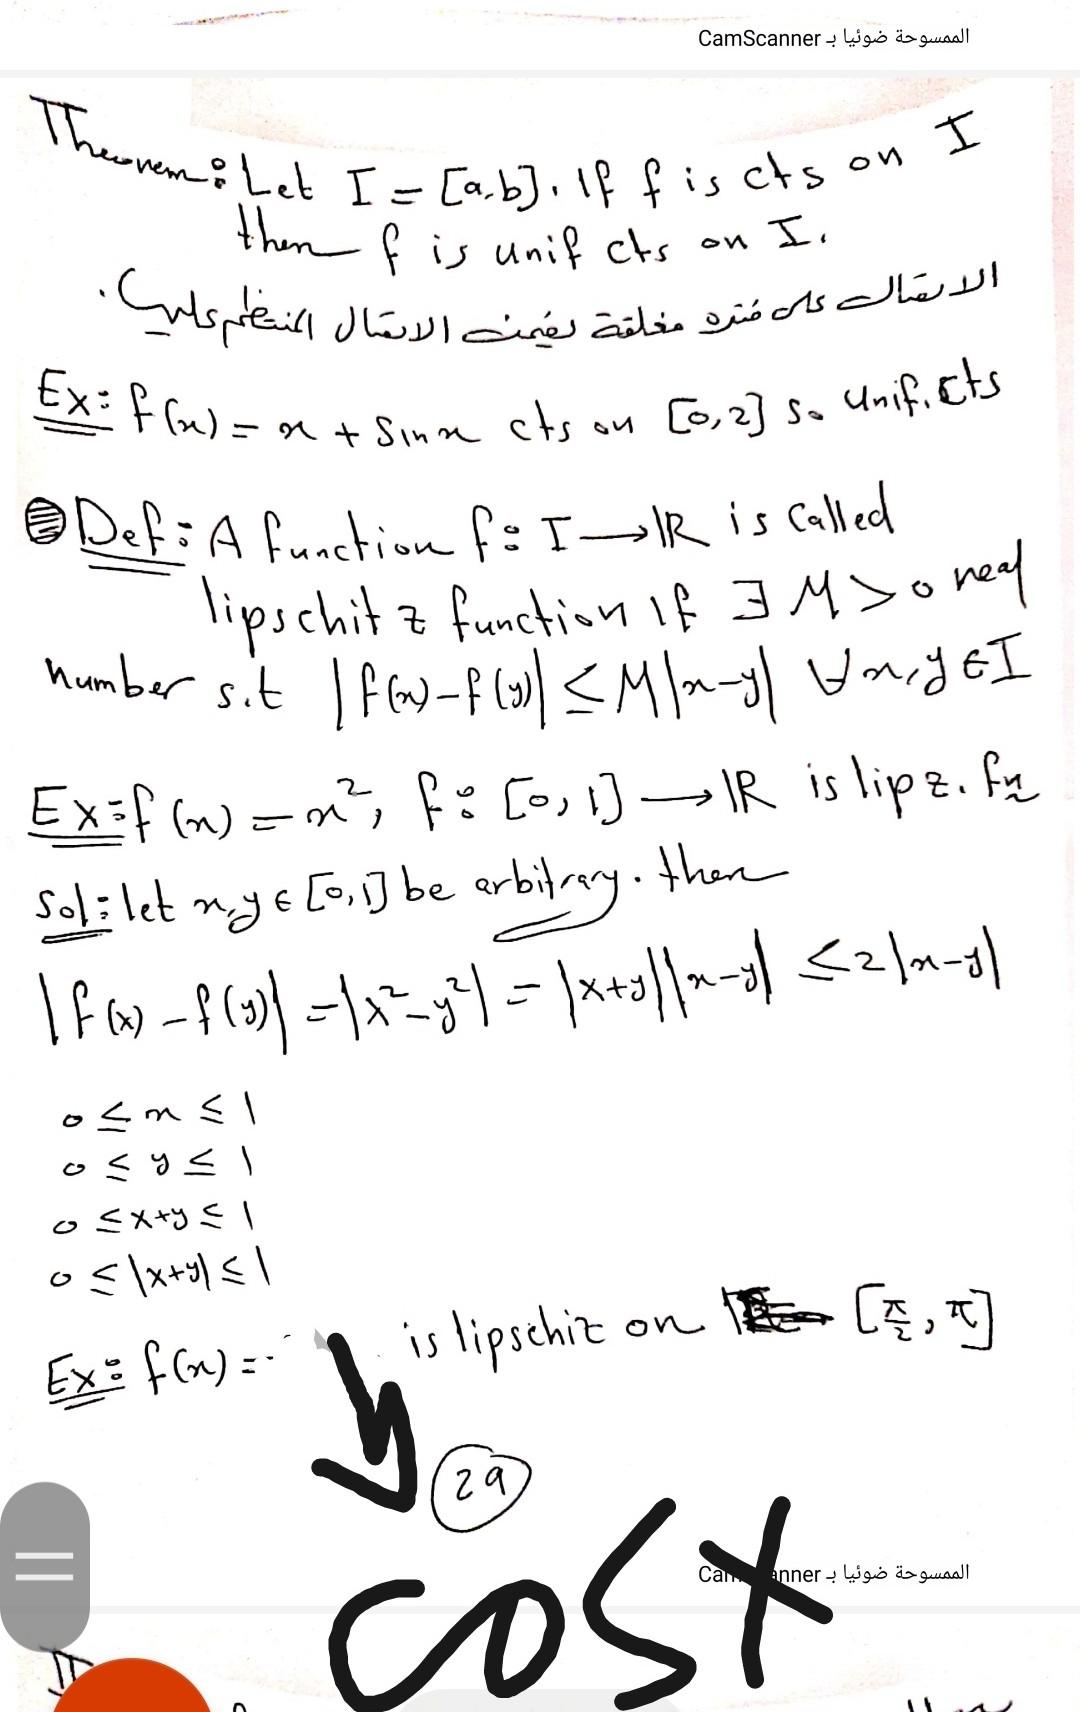 الممسوحة ضوئيا بـ CamScanner
Theorem: Let I = [a,b]. If f is cts on I
then f is unif cts on I.
الاتصال على فترة مغلقة يضمن الاتصال المنتظم عليها.
Ex: f(x) = x + sin x cts on [0,2] so unif. cts
Def: A function f: I → ℝ is called
lipschitz function if ∃ M > 0 real
number s.t |f(x) - f(y)| ≤ M|x-y| ∀x,y ∈ I
Ex: f(x) = x², f: [0,1] → ℝ is lipz. fn
Sol: let x,y ∈ [0,1] be arbitrary. then
|f(x) - f(y)| = |x² - y²| = |x+y||x-y| ≤ 2|x-y|
0 ≤ x ≤ 1
0 ≤ y ≤ 1
0 ≤ x+y ≤ 1
0 ≤ |x+y| ≤ 1
Ex: f(x) = is lipschiz on [π/2, π]
29
cosx
الممسوحة ضوئيا بـ CamScanner